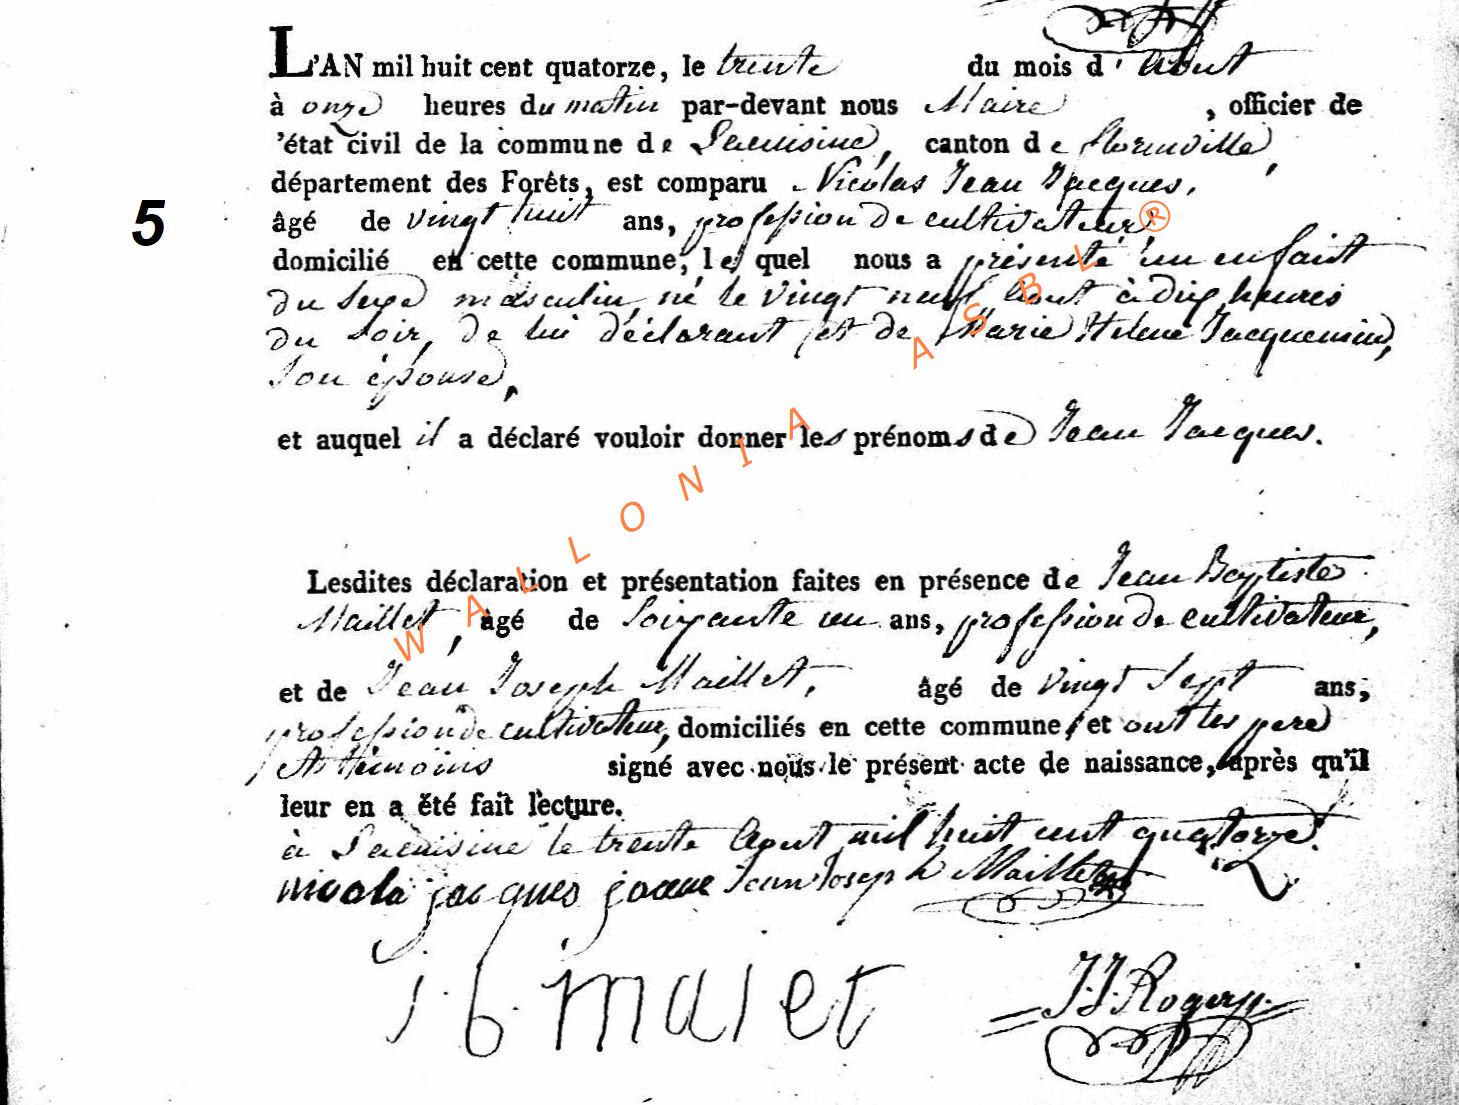 L'AN mil huit cent quatorze, le trente du mois d'Aout
à onze heures du matin par-devant nous Maire , officier de
'état civil de la commune de Lacuisine, canton de florenville,
département des Forêts, est comparu Nicolas Jean Jacques,
5
âgé de vingt huit ans, profession de cultivateur,
domicilié en cette commune, lequel nous a présenté un enfant
du sexe masculin, né le vingt neuf Aout à dix heures
du soir, de lui déclarant et de Marie Helene Jacquemin,
Son épouse,
et auquel il a déclaré vouloir donner les prénoms de Jean Jacques.
WALLONIA ASBL ®
Lesdites déclaration et présentation faites en présence de Jean Baptiste
Maillet, âgé de Soixante un ans, profession de cultivateur,
et de Jean Joseph Maillet, âgé de vingt Sept ans,
profession de cultivateur, domiciliés en cette commune, et ont les pere
et témoins signé avec nous le présent acte de naissance, après qu'il
leur en a été fait lecture.
à Lacuisine le trente Aout mil huit cent quatorze.
nicola jacques Jean Joseph Maillet
j b maiet J.J. Rogery